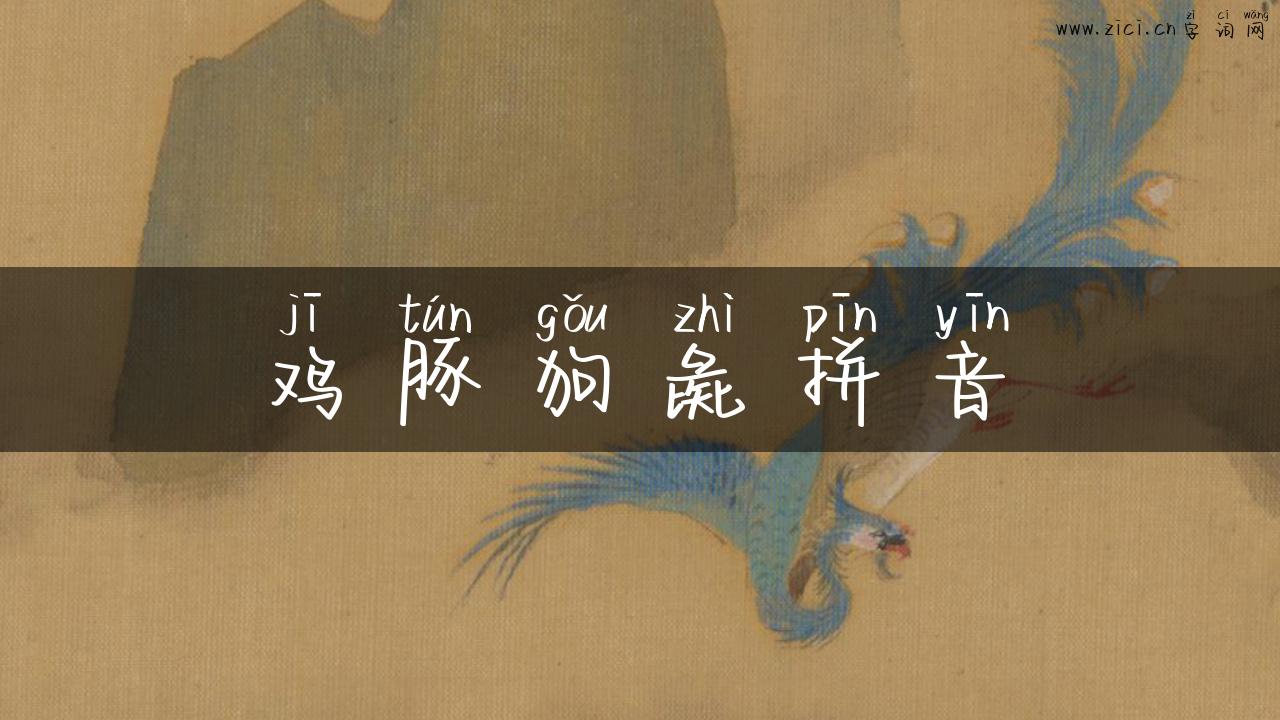 zì cí wǎng
www.zici.cn 字 词 网
jī tún gǒu zhì pīn yīn
鸡 豚 狗 彘 拼 音